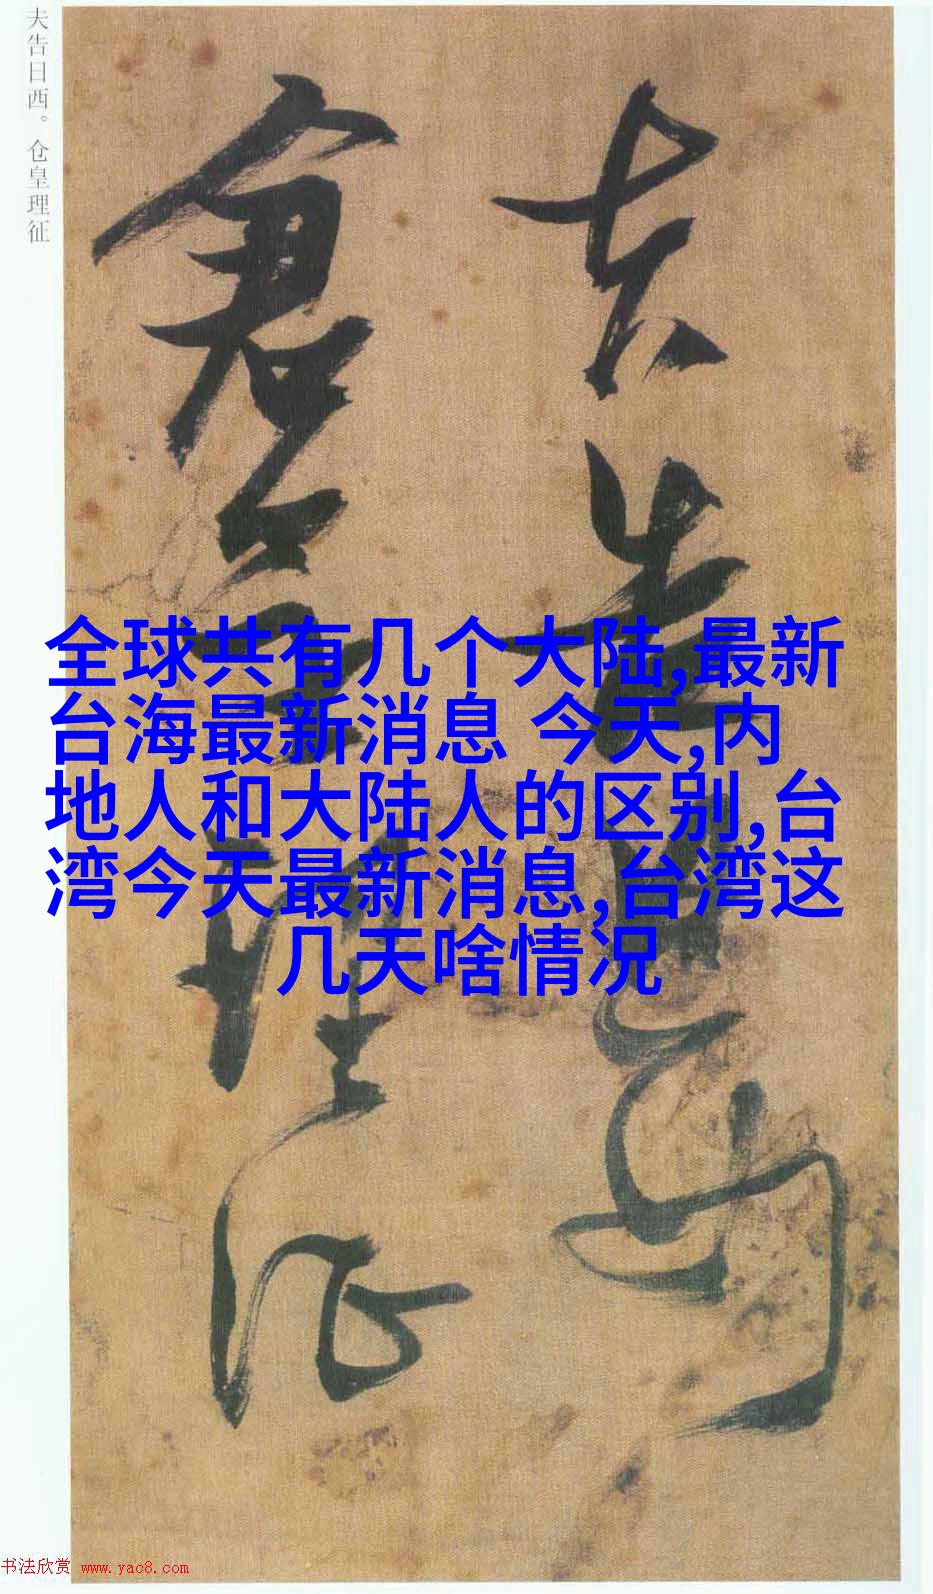 夫告日西。仓皇理征
全球共有几个大陆,最新
台海最新消息 今天,内
地人和大陆人的区别,台
湾今天最新消息,台湾这
几天啥情况
书法欣赏 www.yac8.com